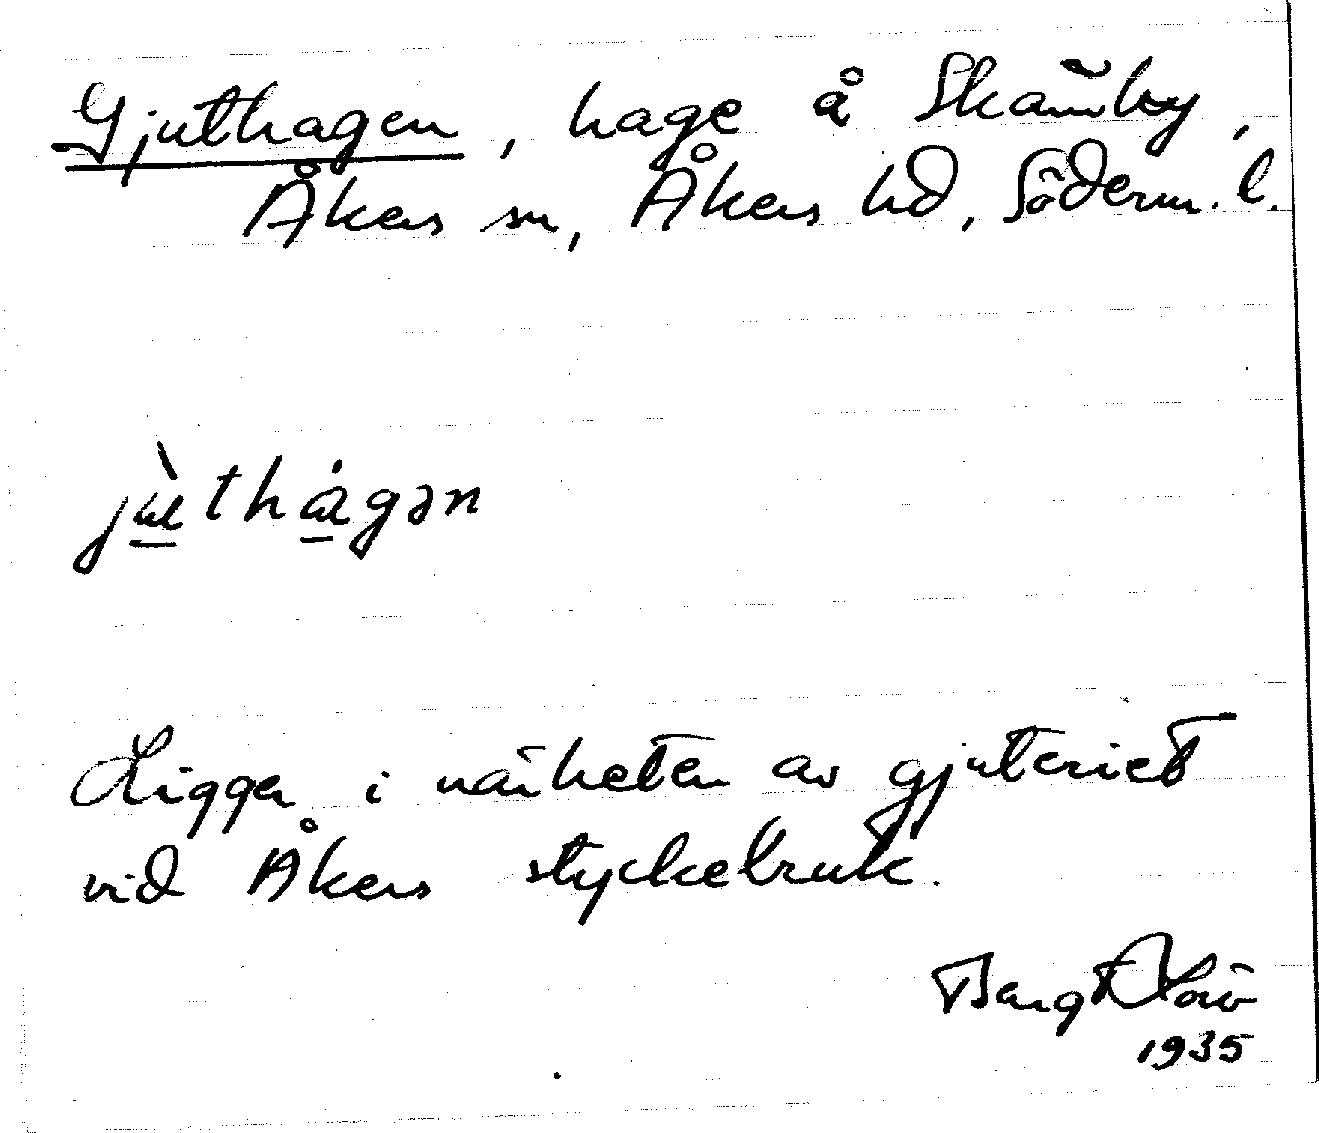 Gjuthagen, hage å Skämby,
Åkers sn, Åkers hd, Söderm. l.
jùthågən
Ligger i närheten av gjuteriet
vid Åkers styckebruk.
1935